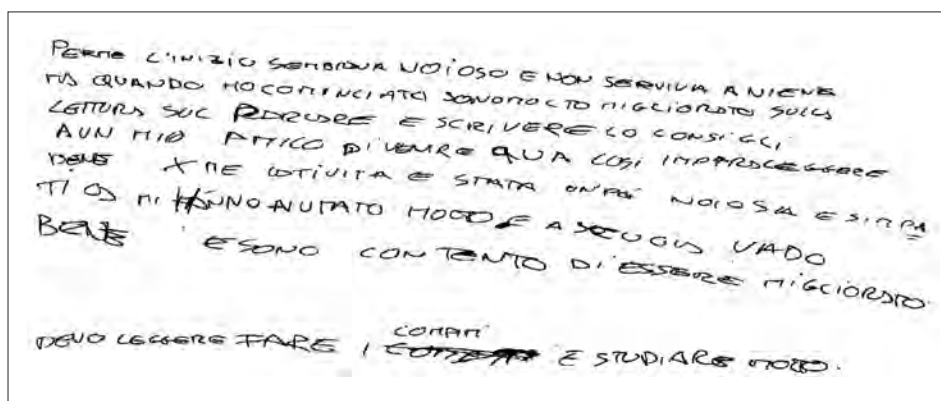 PER ME L'INIZIO SEMBRAVA NOIOSO E NON SERVIVA A NIENE
MA QUANDO HO COMINCIATO SONO MOLTO MIGLIORATO SULLA
LETTURA SUL PARLARE E SCRIVERE LO CONSIGLI
A UN MIO AMICO DI VENIRE QUA COSI IMPARA LEGGERE
BENE X ME ATIVITA E STATA NOIOSA E SIMPA
TICA MI HANNO AIUTATO MOLTO E A SCUOLA VADO
BENE E SONO CONTENTO DI ESSERE MIGLIORATO.
DEVO LEGGERE FARE I COMPITI E STUDIARE MOLTO.